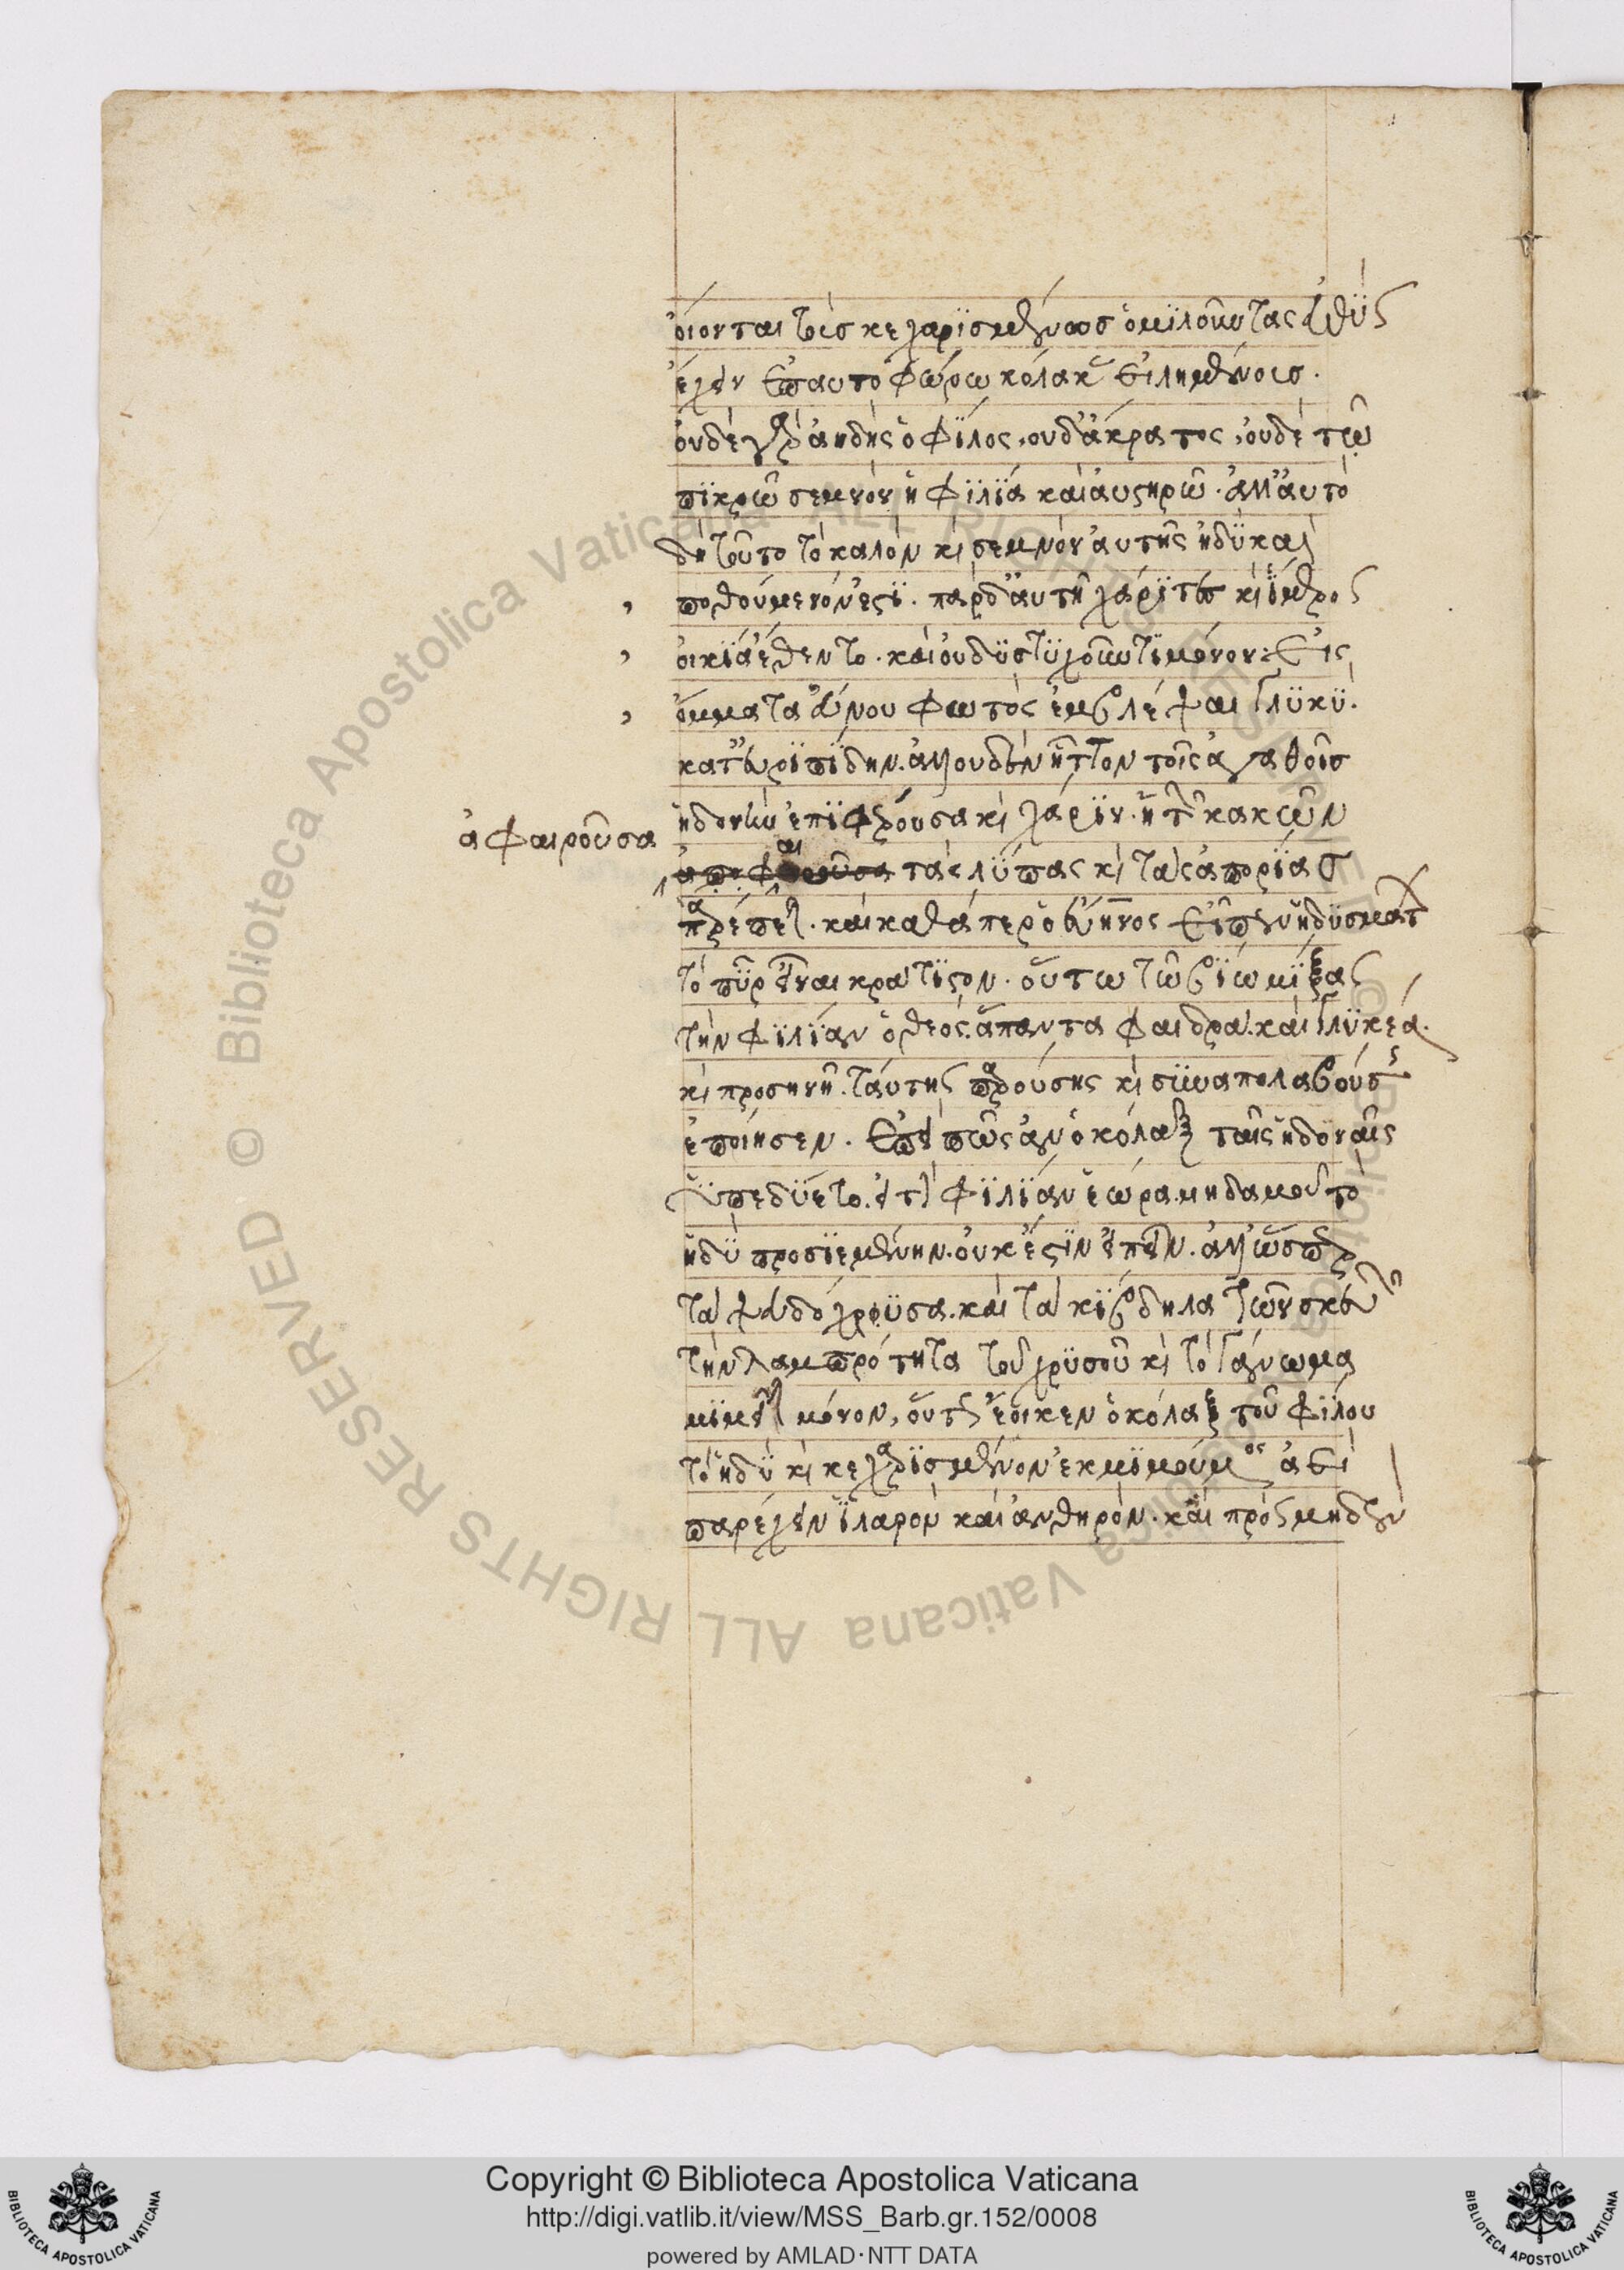 όιονται τοὺσ κεχαρϊσμένωσ ὁμϊλοῦντας ἐυθὺς
ἔχειν ἐπαυτοφώρω κόλακας ἐιλημμένουσ.
ὀυδὲ γὰρ ἀηδὴς ὁ φίλος, ουδ' ἄκρατος, ὀυδὲ τῶ
πϊκρῶ σεμνὸν ἡ φϊλϊά καὶ ἀυστηρῶ. ἀλλ' ἀυτὸ
δὴ τοῦτο τὸ καλὸν κὶ σεμνὸν ἀυτῆς ἡδὺ καὶ
ποθούμενόν ἐστϊ. παρὰ δ' ἀυτῆ χάρϊτες κὶ ἵμερος
οικϊ' ἔθεντο. καὶ ουδϋστυχοῦντϊ μόνον: ἐις
ὄμματ' ἐύνου φωτὸς ἐμβλέψαι γλϋκϋ.
κατ' ἐυρϊπϊδην. ἀλλ' ουδὲν ἧττον τοῖς ἀγαθοῖσ
ἡδονὴν ἐπϊφέρουσα κὶ χάρϊν. ἢ τῶν κακῶν
ἀφαιροῦσα
τὰς λύπας κὶ τὰς ἀπορϊάσ
παρέπεται. καὶ καθάπερ ὁ ἐύηνος ἐῖπεν ἡδυσμάτων
τὸ πῦρ εἶναι κράτϊστον. οὕτω τῶ βϊω μϊξας
τὴν φϊλϊαν ὁ θεὸς. ἅπαντα φαιδρὰ καὶ γλυκέα.
κὶ προσηνῆ. ταύτης παρούσης κὶ συναπολαβούσης
ἐποίησεν. ἐπεὶ πῶς ἂν ὁ κόλαξ ταῖς ἡδοναῖς
ὑπεδύετο. εἰ τὴν φϊλϊαν ἑώρα μηδαμοῦ τὸ
ἡδὺ προσϊεμένην. ὀυκ ἔστϊν ειπεῖν. ἀλλ' ὥσπερ
τὰ ψευδόχρυσα. καὶ τὰ κϊβδηλα τῶν σκευῶν
τὴν λαμπρότητα τοῦ χρυσοῦ κὶ τὸ γάνωμα
μϊμεῖται μόνον, οὕτως ἔοικεν ὁ κόλαξ τοῦ φϊλου
τὸ ἡδὺ κὶ κεχαρϊσμένον ἐκμϊμούμενος ἀεὶ
παρέχειν ϊλαρὸν καὶ ἀνθηρὸν. καὶ πρὸς μηδὲν
Copyright © Biblioteca Apostolica Vaticana
http://digi.vatlib.it/view/MSS_Barb.gr.152/0008
powered by AMLAD·NTT DATA
BIBLIOTECA APOSTOLICA VATICANA
BIBLIOTECA APOSTOLICA VATICANA
© Biblioteca Apostolica Vaticana ALL RIGHTS RESERVED
© Biblioteca Apostolica Vaticana ALL RIGHTS RESERVED